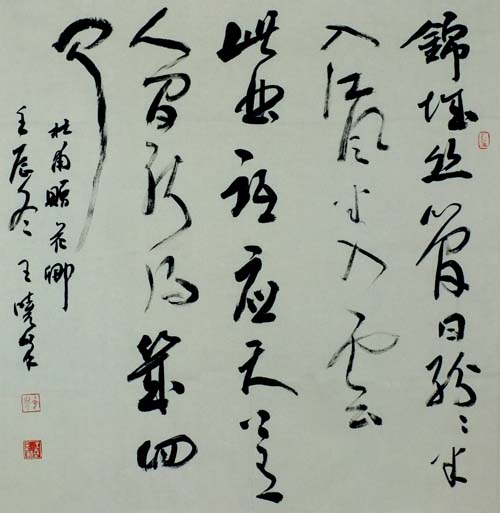 錦城絲管日紛〻半
入江風半入雲
此曲祇應天上有
人間能得幾回
聞
杜甫贈花卿
壬辰冬王曉